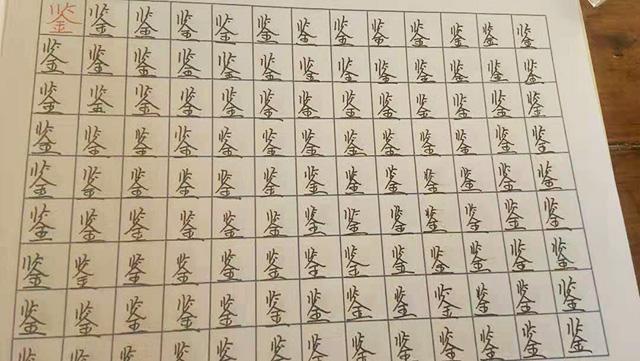 鉴鉴鉴鉴鉴鉴鉴鉴鉴鉴鉴鉴鉴
鉴鉴鉴鉴鉴鉴鉴鉴鉴鉴鉴鉴鉴
鉴鉴鉴鉴鉴鉴鉴鉴鉴鉴鉴鉴鉴
鉴鉴鉴鉴鉴鉴鉴鉴鉴鉴鉴鉴鉴
鉴鉴鉴鉴鉴鉴鉴鉴鉴鉴鉴鉴鉴
鉴鉴鉴鉴鉴鉴鉴鉴鉴鉴鉴鉴鉴
鉴鉴鉴鉴鉴鉴鉴鉴鉴鉴鉴鉴鉴
鉴鉴鉴鉴鉴鉴鉴鉴鉴鉴鉴鉴鉴
鉴鉴鉴鉴鉴鉴鉴鉴鉴鉴鉴鉴鉴